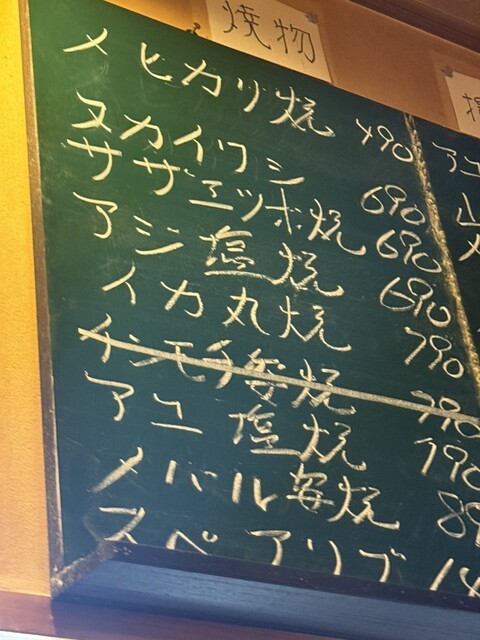 焼物
メヒカリ焼 490
ヌカイワシ 690
サザエツボ焼 690
アジ塩焼 690
イカ丸焼 790
アユ塩焼 790
メバル姿焼
スペアリブ